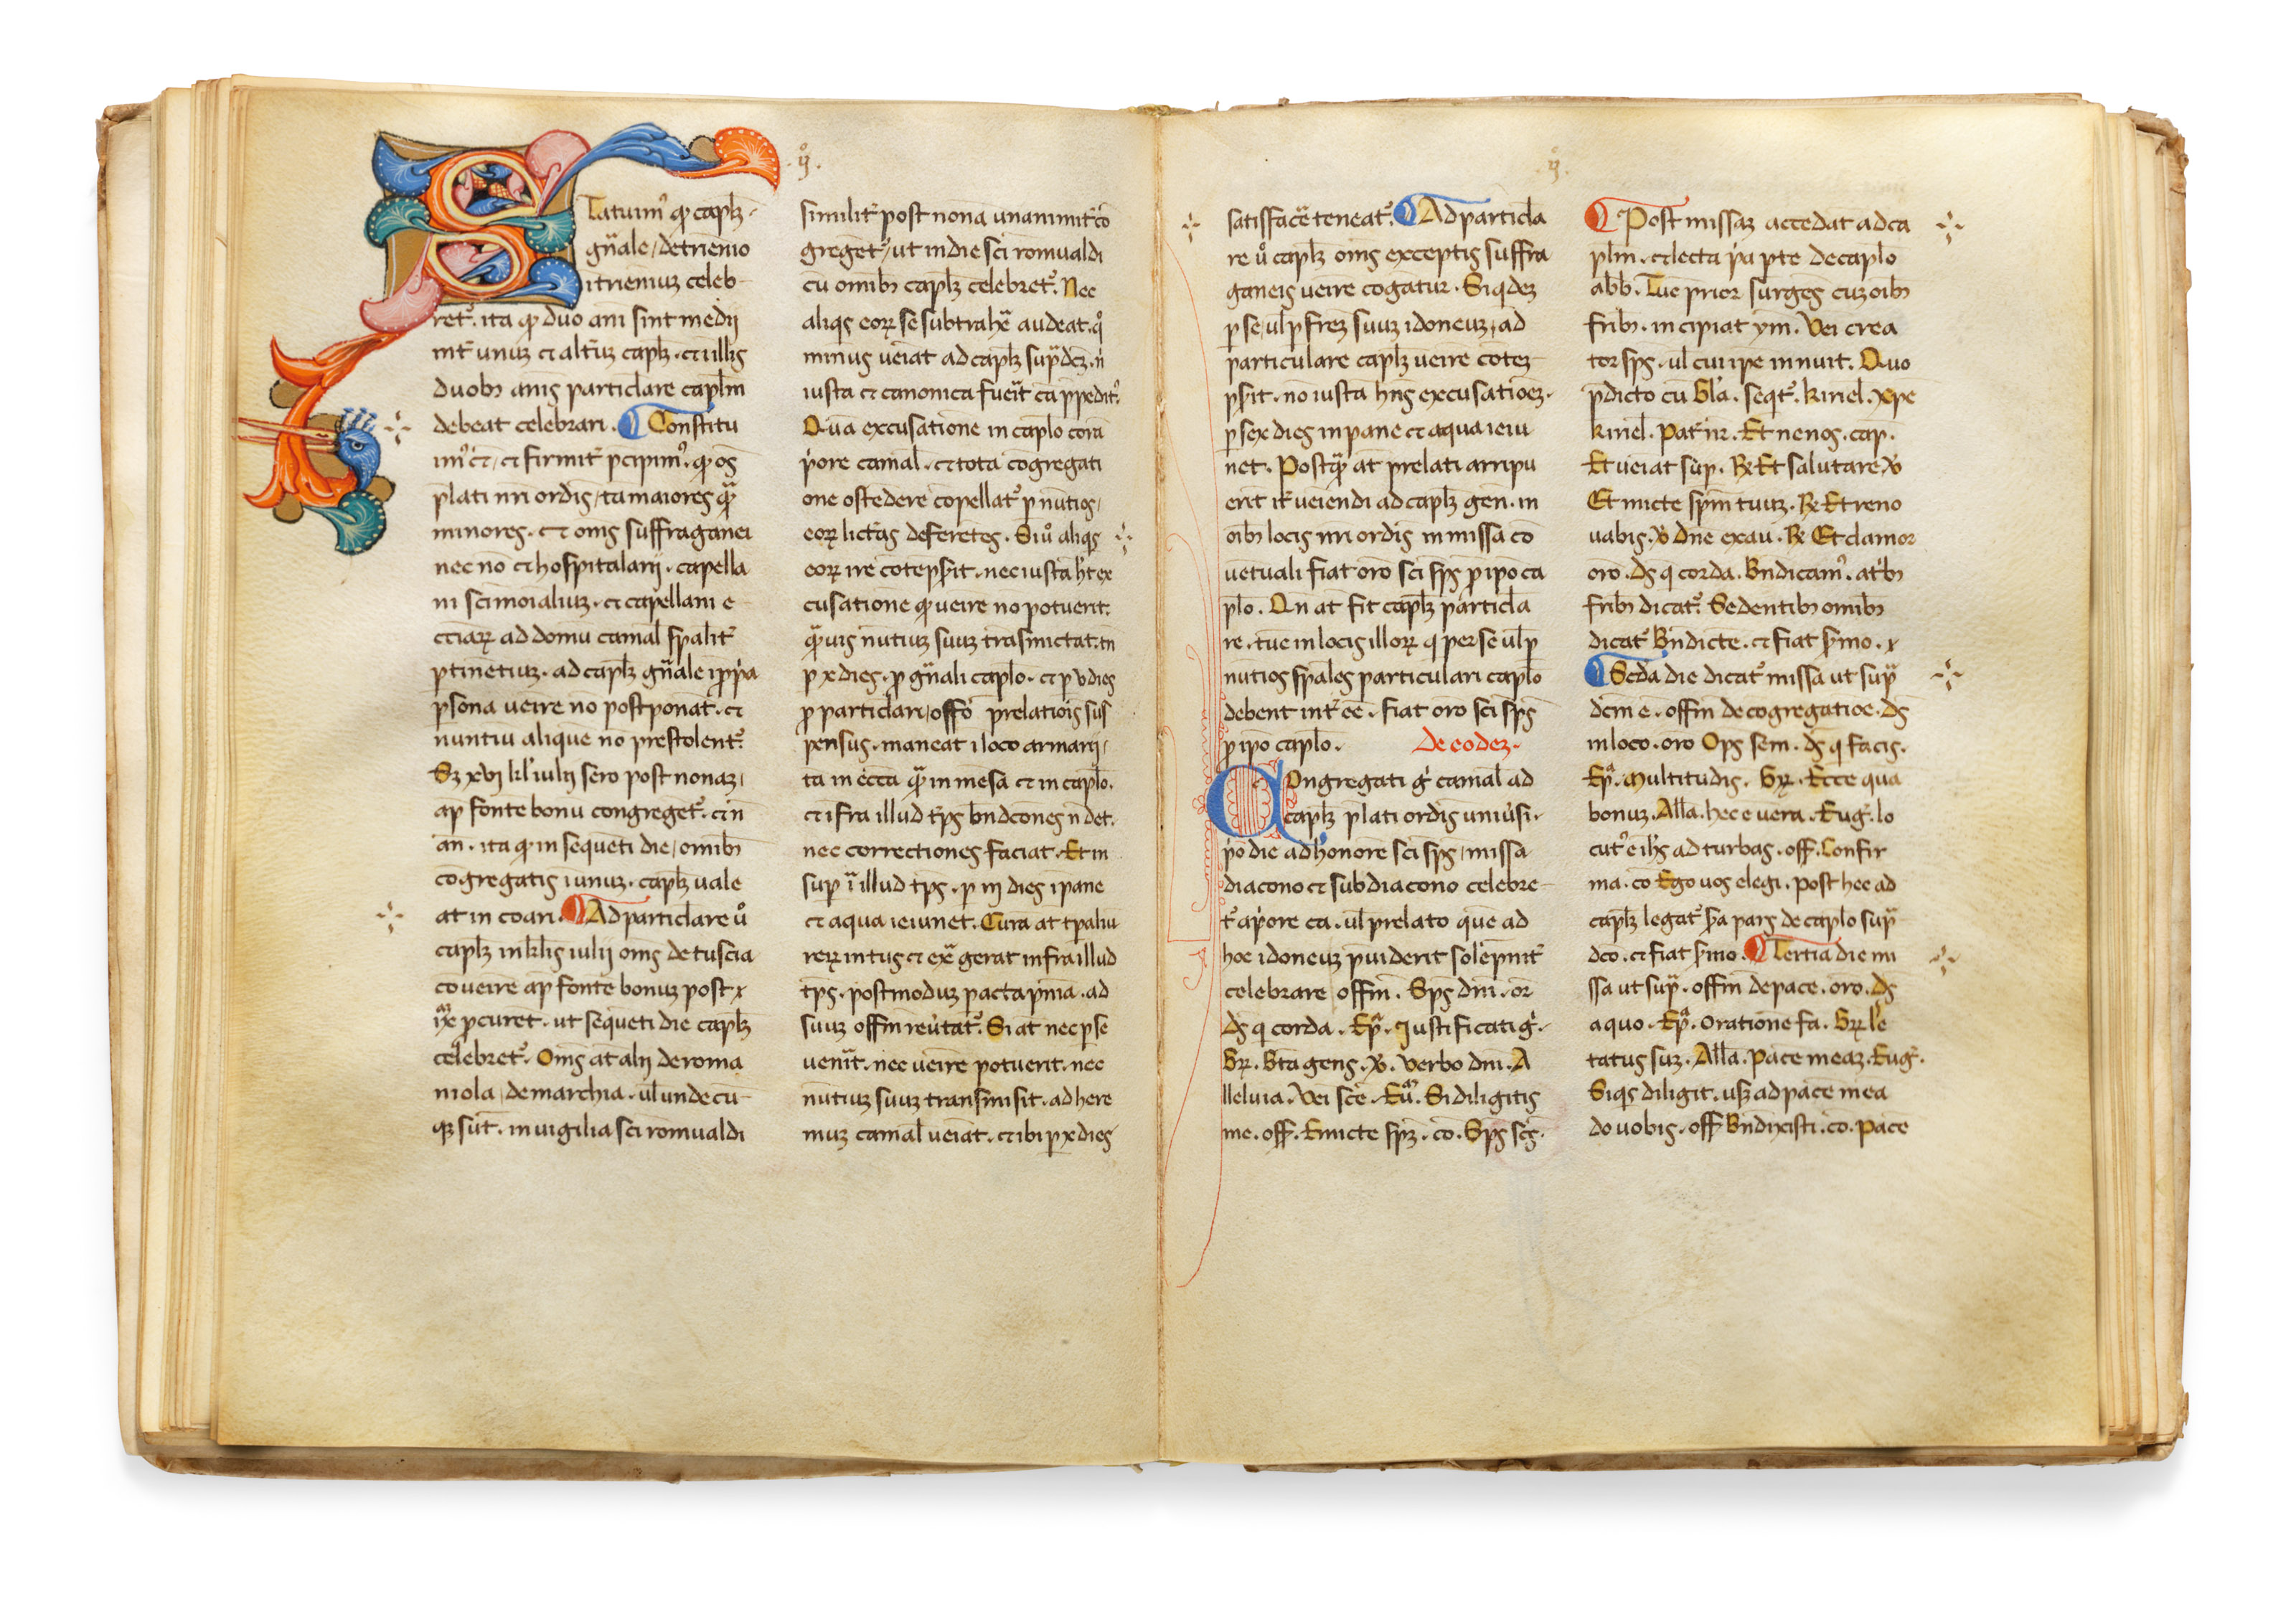 ·ij·
STatuim᷒ qđ capl̄ꝫ·
gn̄ale / de triēnio
i triēniuꝫ celeb
ret᷒. ita qđ duo ani sint medij
int̄ unūꝫ ⁊ alt̄uꝫ capl̄ꝫ · ⁊ illis
duobꝫ anis particlare capl̄m
debeat celebrari . ¶ Constitu
im᷒ ēt / ⁊ firmit̄ p̄cipim᷒. qđ oēs
p̄lati nr̄i ordīs / tā maiores qȝ̄
minores · ⁊ om̄s suffraganei
nec nō ⁊ hospitalarij · capella
ni sc̄imōialiuꝫ · ⁊ capellani e
cc̄iarꝝ ad domū camal̄ sp̄alit̄
ꝑtinētiuꝫ · ad capl̄ꝫ gn̄ale i ꝓp̄a
ꝑsona uenire nō postponāt · ⁊
nuntiū aliquē nō prestolent᷒.
Sꝫ xvj kl̄ iulij sero post nonaꝫ /
ap̄ fontē bonū congreget᷒. ⁊ n̄
an̄ · ita qđ in sequēti die / omībꝫ
cōgregatis i unuꝫ · capl̄ꝫ uale
at incoari · ¶ Ad particlare ů
capl̄ꝫ in kl̄is iulij om̄s de tuscia
cōuenire ap̄ fontē bonuꝫ post x
iiijo ꝓcuret · ut sequēti die capl̄ꝫ
celebret᷒. Om̄s āt alij de roma
niola / de marchia · ul̄ undecū
qꝫ sūt · in uigilia sc̄i romualdi
similit̄ post nonā unanimit̄ cō
greget᷒ / ut in die sc̄i romualdi
cū omībꝫ capl̄ꝫ celebret᷒. Nec
aliq̄s eorꝝ se subtrahē audeat · qͦ
minus ueiat ad capl̄ꝫ sup̄dc̄ꝫ · n̄
iusta ⁊ canonica fuēit cā p̄pedit᷒.
Quā excusatione in caplo corā
p̓ore camal̄ · ⁊ tota cōgregati
one ostēdere cōpellat᷒ ꝑ nūtios /
eorꝝ lictās deferētes · Si ů aliq̄s
eorꝝ ire cōtēpsit · nec iustā hēt ex
cusatione qđ ueīre nō potuerit ·
qȝ̄uis nūtiuꝫ suuꝫ trāsmictat · tn̄
ꝑ x dies · ꝓ gn̄ali caplo · ⁊ ꝑ v dies
ꝓ particlari / offo prelatiōis sus
pensus · maneat i loco armarij /
tā in ecc̄a qȝ̄ in mēsa ⁊ in caplo ·
⁊ ifra illud tp̄s bn̄dc̄ōnes n̄ det ·
nec correctiones faciat · Et in
sup ī illud tp̄s · ꝑ iij dies i pane
⁊ aqua ieiunet · Cura āt tp̄aliū
rerꝝ intus ⁊ ext̄ gerat infra illud
tp̄s · postmoduꝫ pacta pīna · ad
suuꝫ offm̄ reūtat᷒. Si āt nec ꝑ se
uenit · nec ueīre potuerit · nec
nūtiuꝫ suuꝫ transmisit · ad here
muꝫ camal̄ ueiat · ⁊ ibi ꝑ x dies
·ij·
satisfacē teneat᷒. ¶ Ad particla
re ů capl̄ꝫ om̄s exceptis suffra
ganeis ueire cogātur · Si q̇deꝫ
ꝑ se / ul̄ ꝑ frēꝫ suuꝫ idoneuꝫ / ad
particulare capl̄ꝫ ueīre cōtēꝫ
psit · nō iustā hn̄s excusatiōeꝫ ·
ꝑ sex dies in pane ⁊ aqua ieiu
net · Postqȝ̄ āt prelati arripu
erīt it̄ ueiendi ad capl̄ꝫ gen̄ · in
oībꝫ locis nr̄i ordīs in missa cō
uētuali fiat oro sc̄i sp̄s ꝓ ip̄o ca
plo · Qn̄ āt fit capl̄ꝫ particla
re · tūc in locis illorꝝ q̇ per se ul̄ ꝑ
nūtios sp̄ales particulari caplo
debent int̄ēē · fiat oro sc̄i sp̄s
ꝓ ip̄o caplo · De eodeꝫ ·
COngregati g̓ camal̄ ad
capl̄ꝫ p̄lati ordīs uniūsi ·
p̓o die ad honorē sc̄i sp̄s / missa
diacono ⁊ subdiacono celebre
t᷒ a p̓ore ca · ul̄ prelato quē ad
hoc idoneuꝫ ꝓuiderit solēpnit̄
celebrare / offm̄ · Sp̄s dn̄i · or̄
Ds̄ q̇ corda · Ep̄a · Justificati g̓ ·
Gꝝ · Bta gens · ℣ · Verbo dn̄i · A
lleluia · Vei sc̄e · Eu̅ · Si diligitis
me · off · Emicte sp̄ꝫ · co · Sp̄s sc̄s ·
¶ Post missaꝫ accedat ad ca
plm̄ · ⁊ lecta p̓a pte de caplo
abb · Tūc prior surgēs cuꝫ oībꝫ
frībꝫ · incipiat ym̄ · Vei crea
tor sp̄s · ul̄ cui ip̄e innuit · Quo
p̄dicto cū Gl̄a · seqt᷒. kiriel̄ · Xp̄e
kiriel̄ · Pat̄ nr̄ · Et ne nos · cap ·
Et ueiat sup · ℟ Et salutare ℣
Et micte sp̄m tuuꝫ · ℟ Et reno
uabis · ℣ Dn̄e exau · ℟ Et clamor
oro · Ds̄ q̇ corda · Bn̄dicam᷒. at bꝫ
frībꝫ dicat᷒. Sedentibꝫ omībꝫ
dicat᷒ Bn̄dicte · ⁊ fiat s̓mo · x
¶ Sc̄da die dicat᷒ missa ut sup̄
dc̄m ē · offm̄ de cōgregatiōe · Ds̄
in loco · oro Ops sem · ds̄ q̇ facis ·
Ep̄a · Multitudīs · Gꝝ · Ecce quā
bonuꝫ · All̄a · hec ē uera · Eug̓ · lo
cut᷒ ē ih̄s ad turbas · off · Confir
ma · co Ego uos elegi · Post hec ad
capl̄ꝫ legat᷒ p̓a pars de caplo sup̄
dc̄o · ⁊ fiat s̓mo · ¶ Tertia die mi
ssa ut sup̄ · offm̄ de pace · oro · Ds̄
a quo · Ep̄a · Oratione fa · Gꝝ le
tatus suꝫ · All̄a · Pacē meaꝫ · Eug̓ ·
Si q̇s diligit · usqꝫ ad pacē meā
do uobis · off Bn̄dixisti · co · Pacē